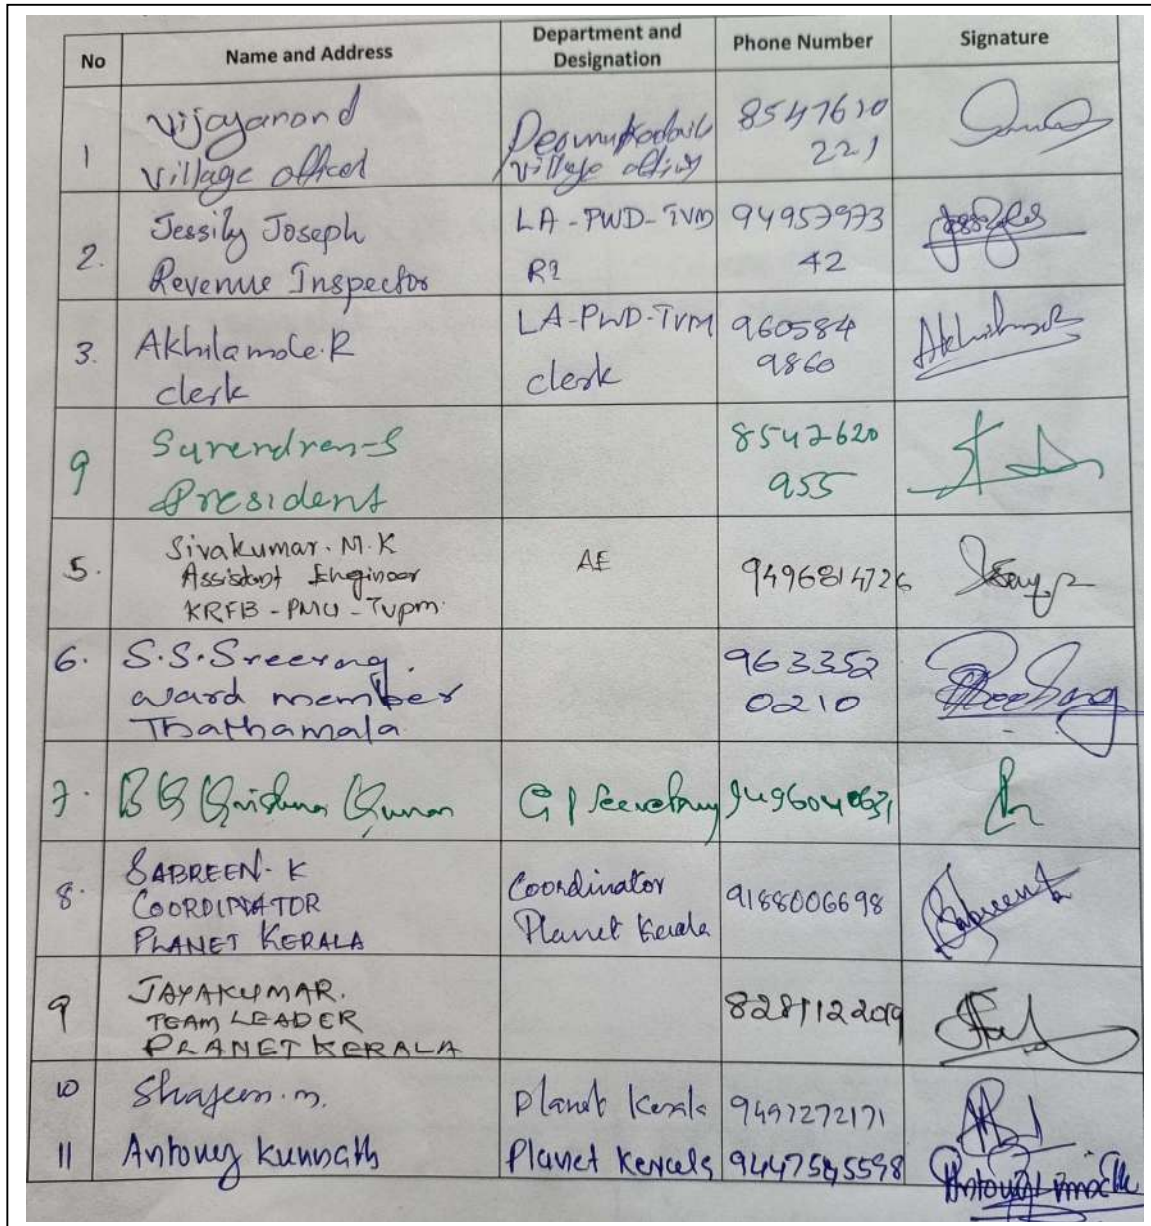 No Name and Address Department and Designation Phone Number Signature
1 Vijayanand
Village officer
Village
8547610
221
2. Jessily Joseph
Revenue Inspector
LA-PWD-TVM
RI
94957973
42
3. Akhilamole.R
clerk
LA-PWD-TVM
clerk
960584
9860
Surendran-S
President
8547620
955
5. Sivakumar. M.K
Assistant Engineer
KRFB-PMU-Tvpm.
AE
9496814726
6. S.S.Sreerag.
ward member
Thathamala
963352
0210
7. Krishna Kumar
GP Secretary
8. SABREEN. K
COORDINATOR
PLANET KERALA
Coordinator
Planet Kerala
9188006698
Sabreen k
9 JAYAKUMAR.
TEAM LEADER
PLANET KERALA
10 Shajeem.m.
Planet Kerala
9497272171
11 Antony Kunnath
Planet Kerala